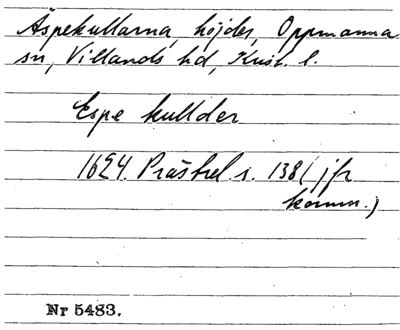 Äspekullarna, höjder, Oppmanna
sn, Villands hd, Krist. l.
Espe kullder
1624. Prästrel. s. 138 (jfr
komm.)
Nr 5483.